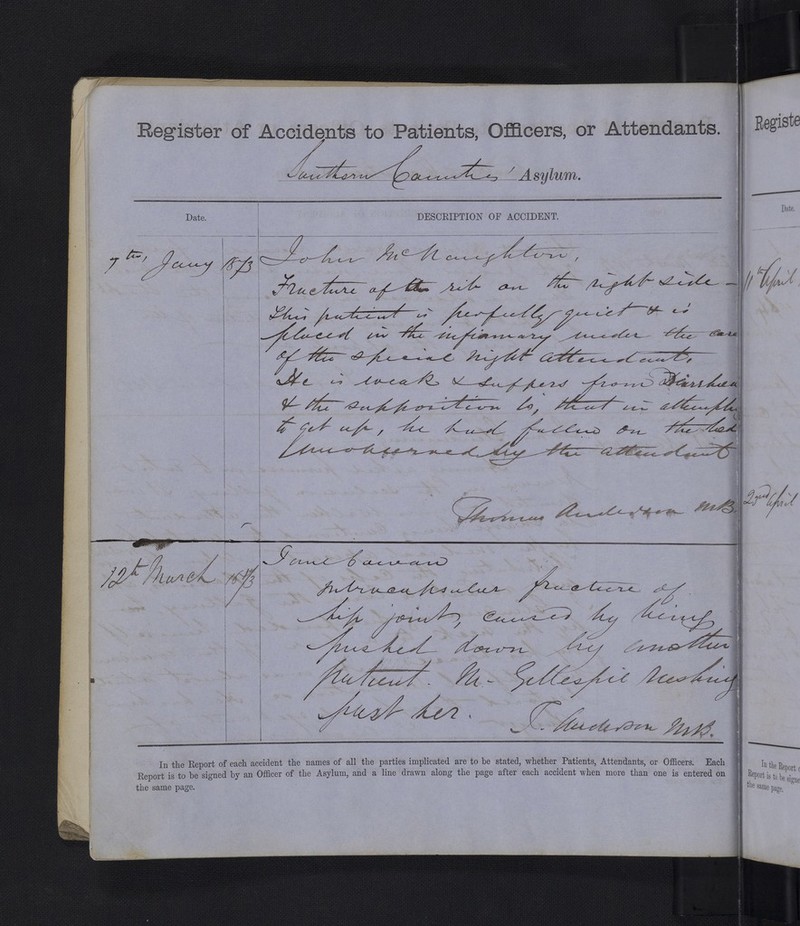 Register of Accidents to Patients, Officers, or Attendants.
Southern Counties' Asylum.
Date.
DESCRIPTION OF ACCIDENT.
7th, Jany 1873
John McNaughton,
Fracture of rib on the right side –
This patient is perfectly quiet & is
placed in the infirmary under the care
of the special night attendant.
He is weak & suffers from Diarrhea
& the supposition is, that in attempting
to get up, he had fallen on the bed
unobserved by the attendant
Thomas Anderson MB.
12th March 1873
Jane Cowan
Intracapsular fracture of
hip joint, caused by being
pushed down by another
patient. M– Gellespie rushing
past her.
T. Anderson MB.
In the Report of each accident the names of all the parties implicated are to be stated, whether Patients, Attendants, or Officers. Each
Report is to be signed by an Officer of the Asylum, and a line drawn along the page after each accident when more than one is entered on
the same page.
Registe
Date.
11th April
2nd April
In the Report o
Report is to be signe
the same page.